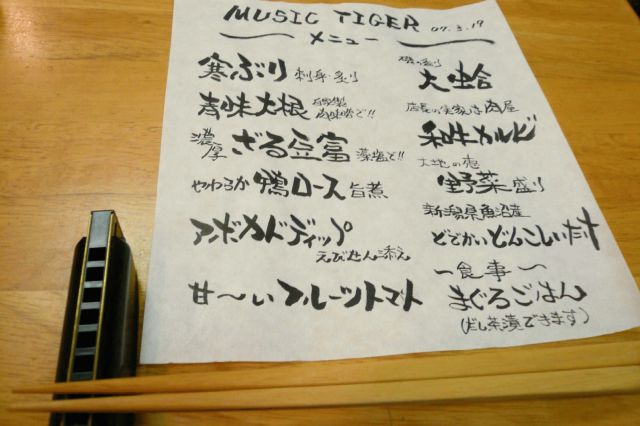 MUSIC TIGER 07.3.19
メニュー
寒ぶり 刺身・炙り
青味大根 自家製 肉味噌で!!
濃厚 ざる豆富 藻塩で!!
やわらか 鴨ロース 旨煮
アボカドディップ
えびせん添え
甘〜いフルーツトマト
磯の香り
大蛤
店長の実家は肉屋
和牛カルビ
大地の恵
野菜盛り
新潟県魚沼産
どでかいどんこしいたけ
ー食事ー
まぐろごはん
(だし茶漬できます)